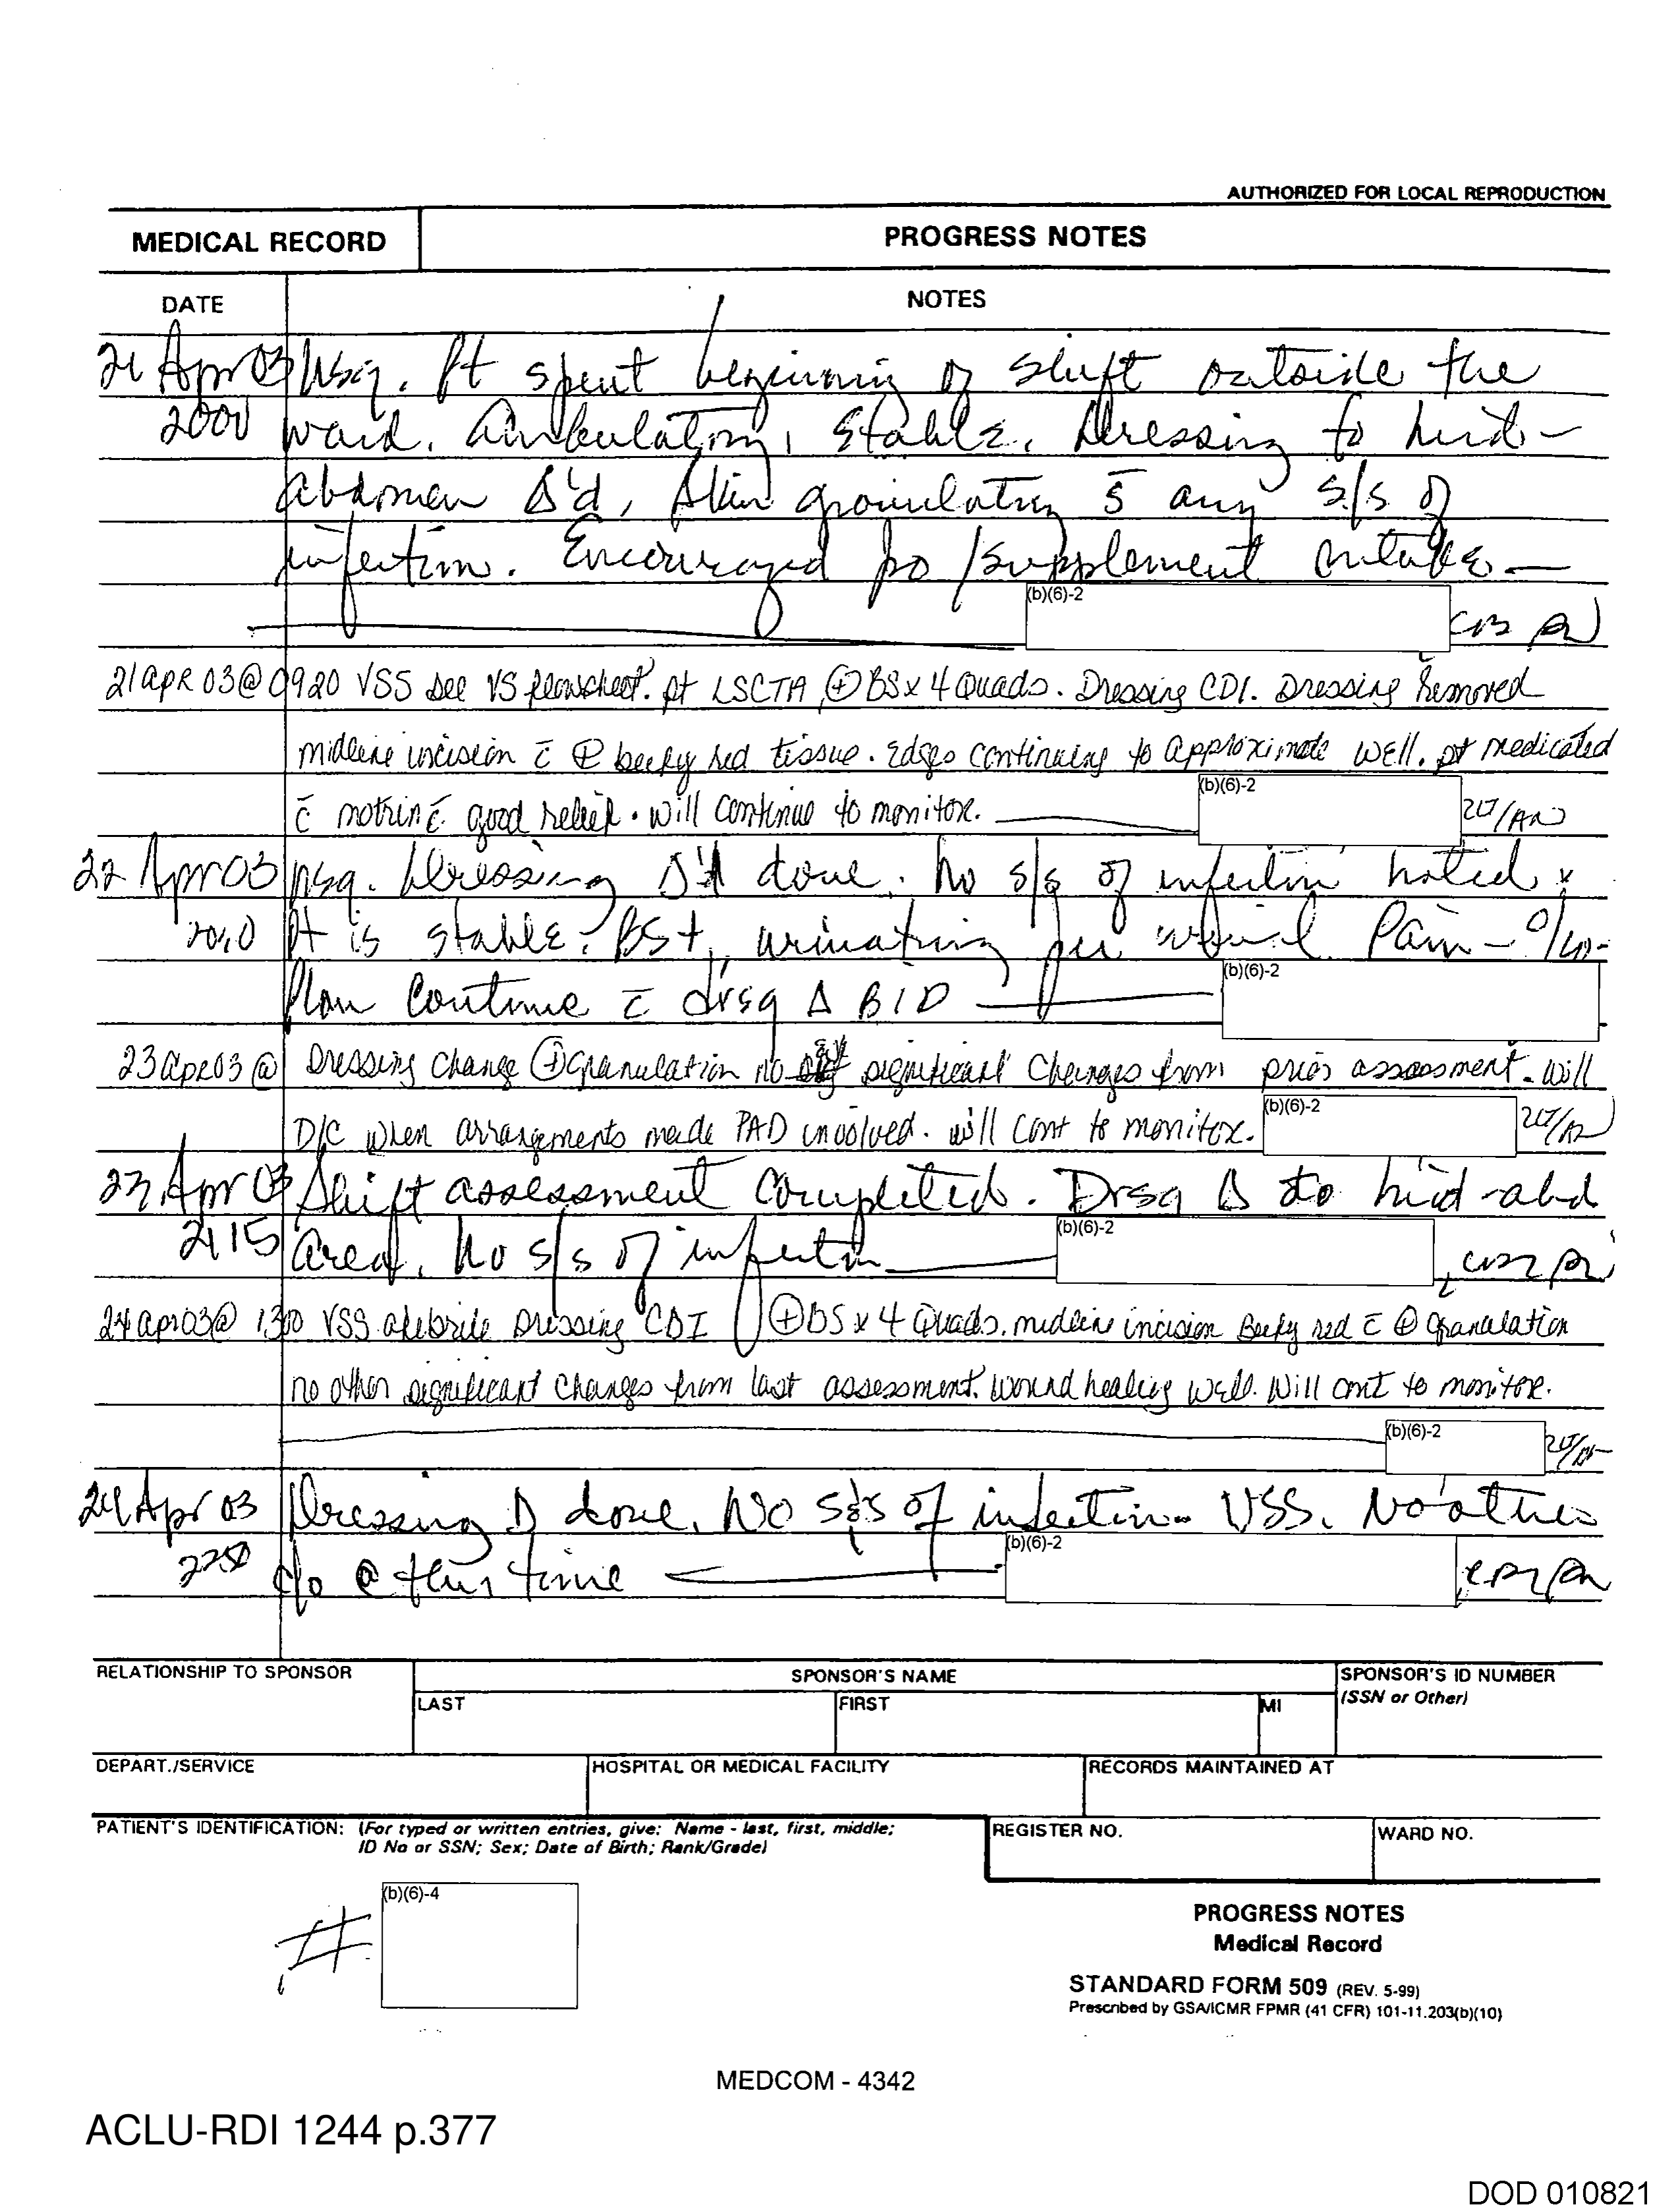 AUTHORIZED FOR LOCAL REPRODUCTION
MEDICAL RECORD
PROGRESS NOTES
DATE
NOTES
21 Apr 03 Nsg. Pt spent beginning of shift outside the
2000 ward. Ambulatory, stable. Dressing to mid-
abdomen Δ'd, skin granulating s̄ any s/s of
infection. Encouraged po/supplement intake —
(b)(6)-2
21 APR 03 @ 0920 VSS see VS flowsheet. pt LSCTA ⊕BS x 4 Quads. Dressing CDI. Dressing removed
midline incision c̄ ⊕ beefy red tissue. Edges continuing to approximate well. pt medicated
c̄ motrin c̄ good relief. will continue to monitor. (b)(6)-2 2LT/AN
22 Apr 03 Nsg. Dressing Δ'd done. No s/s of infection noted
Pt is stable. BS+, urinating per Pain -
Plan continue c̄ drsg Δ BID — (b)(6)-2
23 APR 03 @ Dressing Change ⊕ Granulation no significant changes from prior assessment. will
D/C when arrangements made PAD involved. will cont to monitor. (b)(6)-2 2LT/AN
23 Apr 03 Shift assessment completed. Drsg Δ to mid-abd
2115 area. No s/s of infection (b)(6)-2
24 apr 03 @ 1300 VSS afebrile Dressing CDI ⊕BS x 4 Quads. midline incision Beefy red c̄ ⊕ granulation
no other significant changes from last assessment. wound healing well. Will cont to monitor.
(b)(6)-2 2LT/AN
24 Apr 03 Dressing Δ done. No s&s of infection. VSS. No other
c/o @ this time (b)(6)-2
RELATIONSHIP TO SPONSOR
SPONSOR'S NAME
SPONSOR'S ID NUMBER
(SSN or Other)
LAST
FIRST
MI
DEPART./SERVICE
HOSPITAL OR MEDICAL FACILITY
RECORDS MAINTAINED AT
PATIENT'S IDENTIFICATION: (For typed or written entries, give: Name - last, first, middle;
ID No or SSN; Sex; Date of Birth; Rank/Grade)
REGISTER NO.
WARD NO.
# (b)(6)-4
PROGRESS NOTES
Medical Record
STANDARD FORM 509 (REV. 5-99)
Prescribed by GSA/ICMR FPMR (41 CFR) 101-11.203(b)(10)
MEDCOM - 4342
ACLU-RDI 1244 p.377
DOD 010821